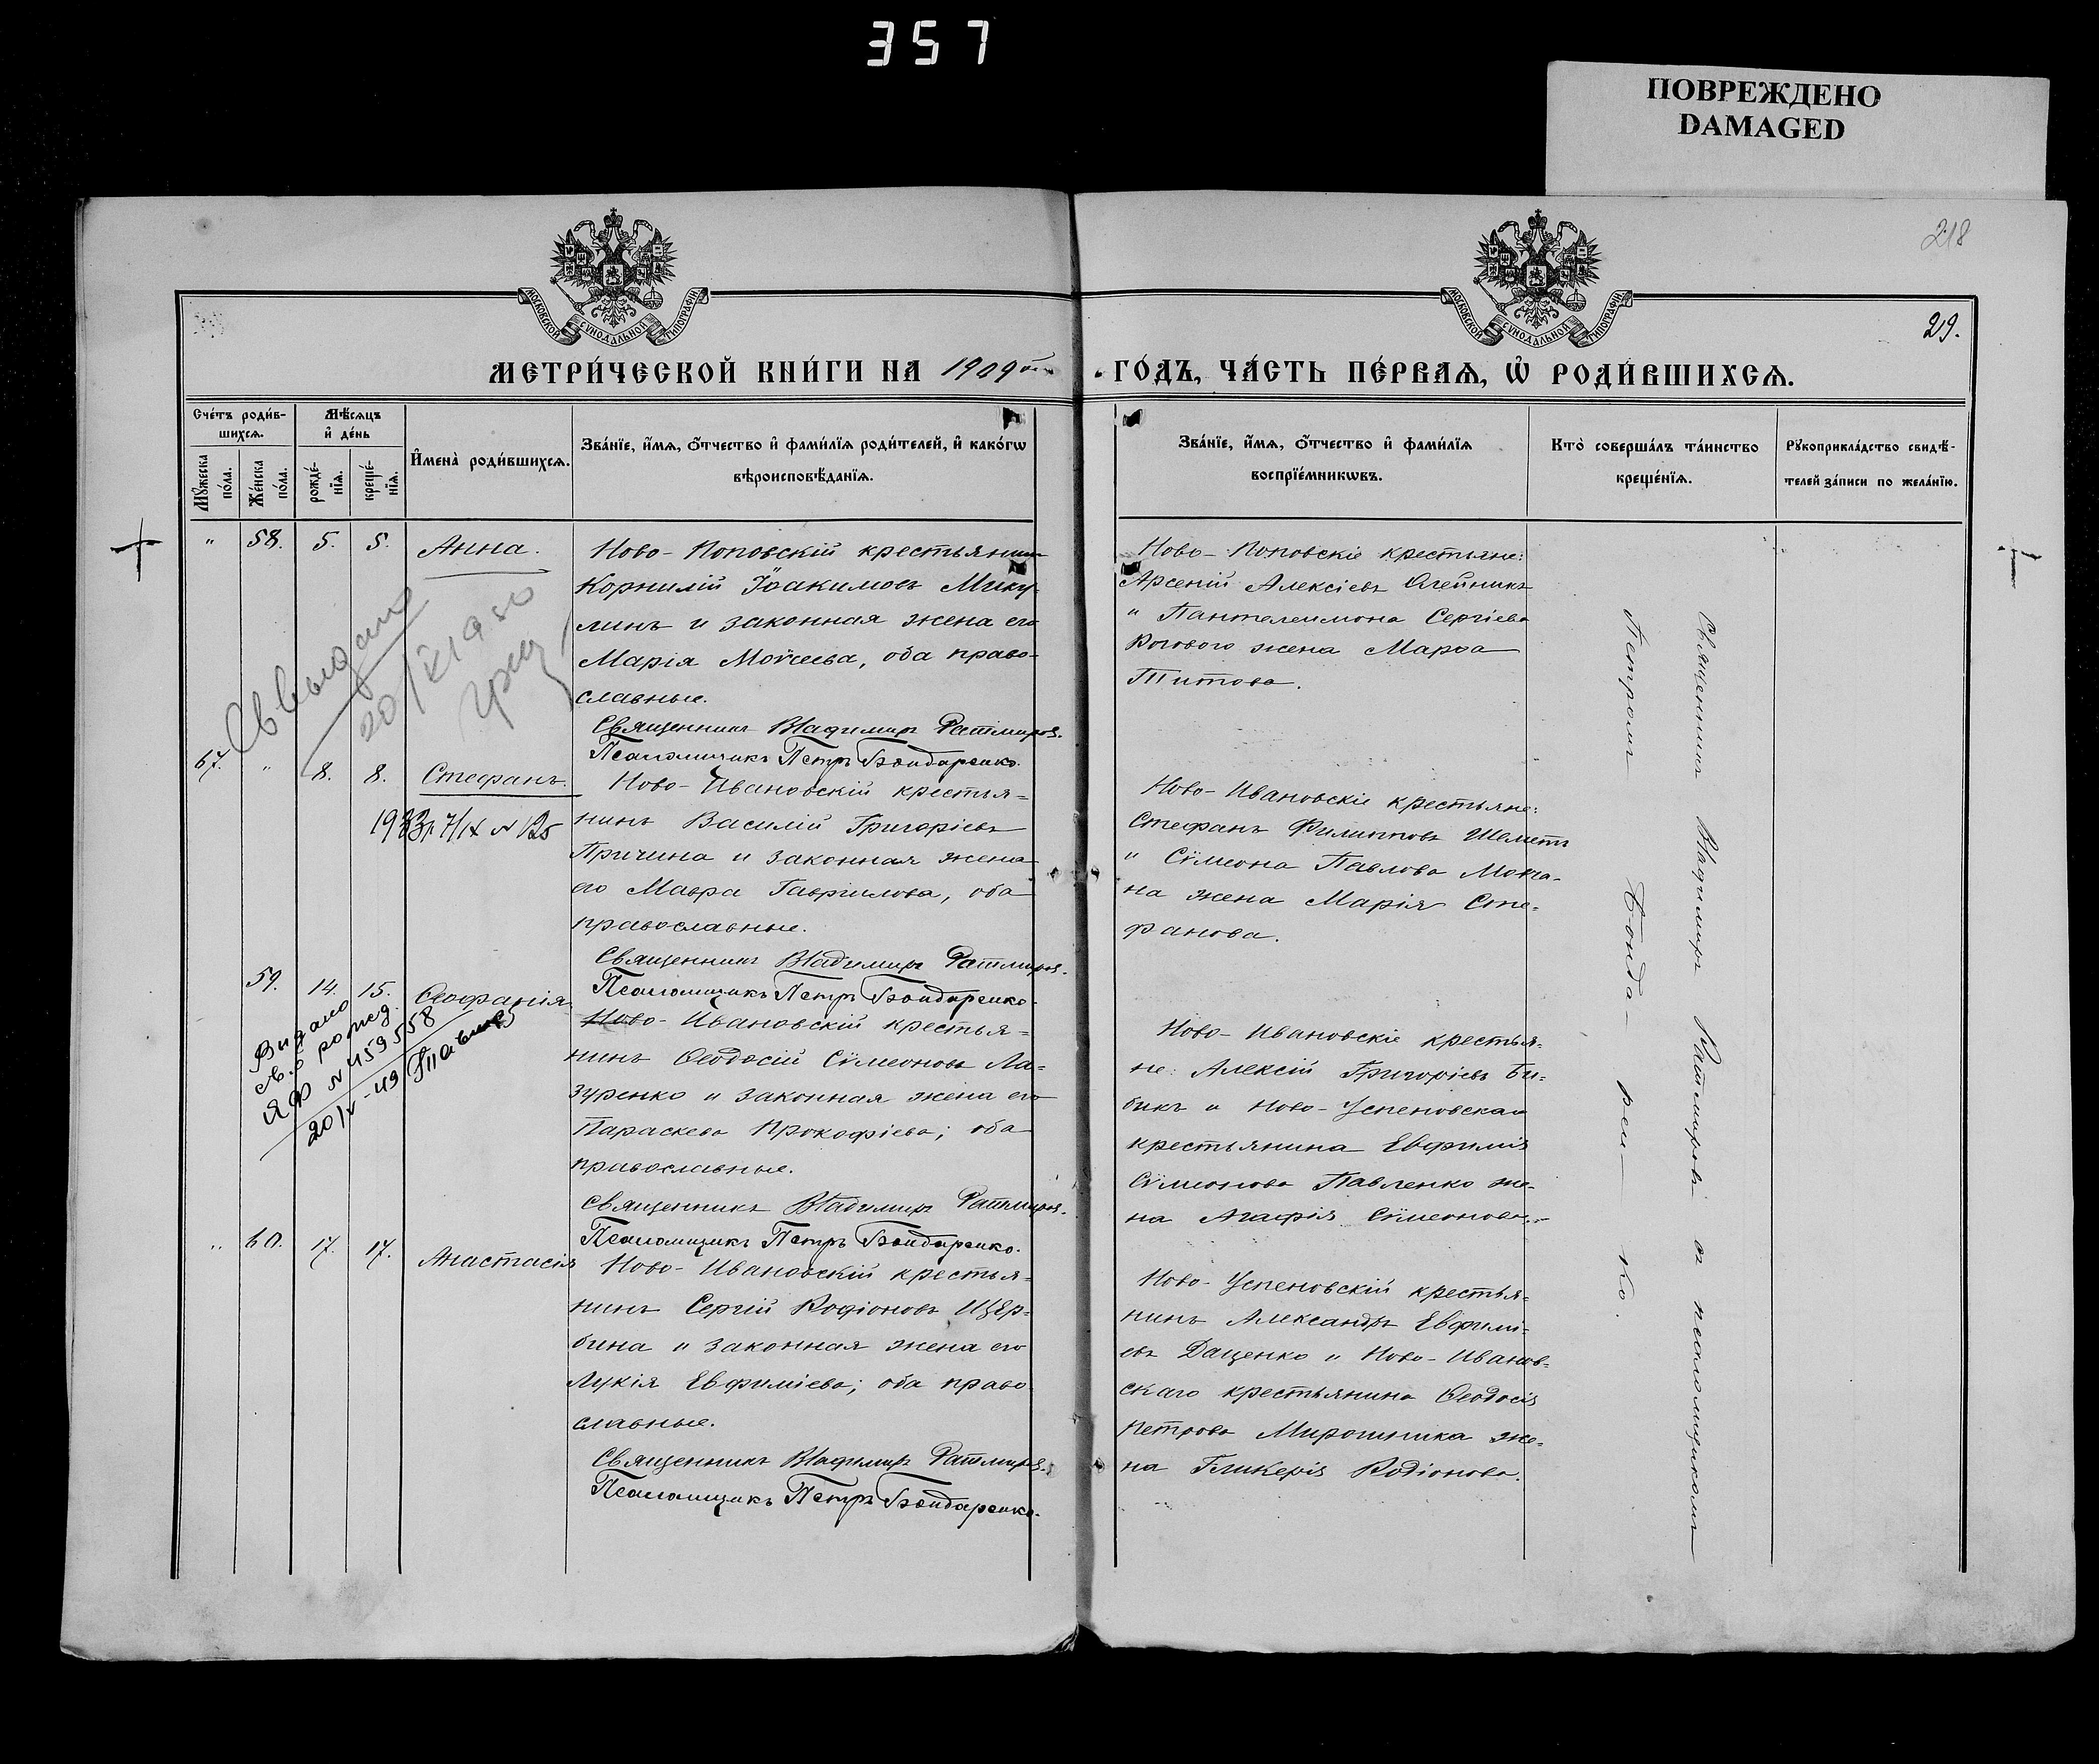 357
ПОВРЕЖДЕНО
DAMAGED
218
29.
МОСКОВСКОЙ СѴНОДАЛЬНОЙ ТИПОГРАФІИ
МОСКОВСКОЙ СѴНОДАЛЬНОЙ ТИПОГРАФІИ
МЕТРИ́ЧЕСКОЙ КНИ́ГИ НА 1909ый ГО́ДЪ, ЧА́СТЬ ПЕ́РВАѦ, Ѡ҆ РОДИ́ВШИХСѦ.
Сче́тъ роди́в-
шихсѧ.
Мѣ́сѧцъ
и҆ де́нь
Мꙋ́жеска
по́ла.
Же́нска
по́ла.
рожде́-
нїѧ.
креще́-
нїѧ.
И҆мена̀ роди́вшихсѧ.
Зва́нїе, и҆́мѧ, ѻ҆́тчество и҆ фами́лїѧ роди́телей, и҆ како́гѡ
вѣроисповѣ́данїѧ.
Зва́нїе, и҆́мѧ, ѻ҆́тчество и҆ фами́лїѧ
воспрїе́мникѡвъ.
Кто̀ соверша́лъ та́инство
креще́нїѧ.
Рꙋкоприкла́дство свидѣ́-
телей за́писи по жела́нїю.
" 58. 5. 5. Анна.
Ново-Поповскій крестьянинъ
Корнилій Іоакимовъ Мику-
линъ и законная жена его
Марія Моѵсеева, оба право-
славные.
Священникъ Владимиръ Ратмировъ.
Псаломщикъ Петръ Бондаренко.
Ново-Поповскіе крестьяне:
Арсеній Алексіевъ Олейникъ
и Пантелеимона Сергіева
Рогового жена Марѳа
Титова.
Св выдано
67. " 8. 8. Стефанъ.
7/IX N 125
Ново-Ивановскій крестья-
нинъ Василій Григоріевъ
Причина и законная жена
его Мавра Гавриилова, оба
православные.
Священникъ Владимиръ Ратмировъ.
Псаломщикъ Петръ Бондаренко.
Ново-Ивановскіе крестьяне:
Стефанъ Филипповъ Шеметъ
и Сѵмеона Павлова Мокча-
на жена Марія Сте-
фанова.
59. 14. 15. Ѳеофанія
Видано
св. о рожд.
ЯФ N 459558
20/V-49
Ново-Ивановскій крестья-
нинъ Ѳеодосій Сѵмеоновъ Ла-
зуренко и законная жена его
Параскева Прокофіева; оба
православные.
Священникъ Владимиръ Ратмировъ.
Псаломщикъ Петръ Бондаренко.
Ново-Ивановскіе крестья-
не: Алексій Григоріевъ Би-
бикъ и Ново-Успеновскаго
крестьянина Евфимія
Сѵмеонова Павленко же-
на Агафія Сѵмеонова.
" 60. 17. 17. Анастасія
Ново-Ивановскій крестья-
нинъ Сергій Родіоновъ Щер-
бина и законная жена его
Лукія Евфиміева; оба право-
славные.
Священникъ Владимиръ Ратмировъ.
Псаломщикъ Петръ Бондаренко.
Ново-Успеновскій крестья-
нинъ Александръ Евфимі-
евъ Даценко и Ново-Иванов-
скаго крестьянина Ѳеодосія
Петрова Мирошника же-
на Гликерія Родіонова.
Священникъ Владимиръ Ратмировъ и псаломщикомъ
Петромъ Бондаренко.